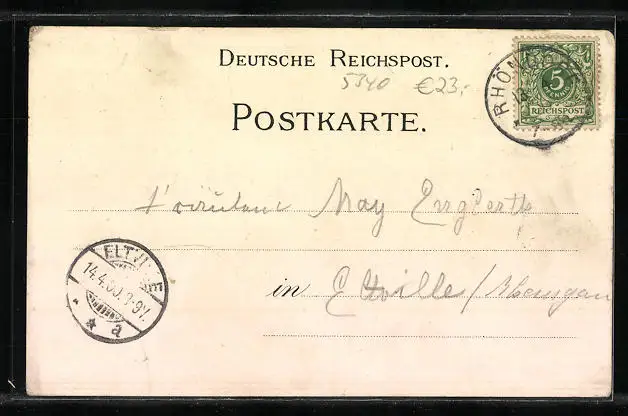 DEUTSCHE REICHSPOST.
5340 €23,-
POSTKARTE.
RHÖN
5
PFENNIG
REICHSPOST
Fräulein May Englerth
ELTVILLE
14.4.00.8-9V.
a
in Eltville/Rheingau